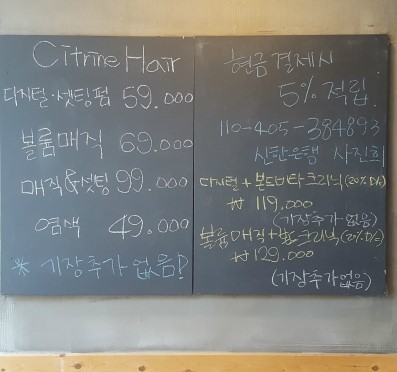 Citrine Hair
디지털·셋팅펌 59.000
볼륨매직 69.000
매직&셋팅 99.000
염색 49.000
※ 기장추가 없음!
현금결제시
5% 적립
110-405-384893
신한은행 사진희
디지털+본드비타크리닉(20% D/c)
₩ 119.000
(기장추가 없음)
볼륨매직+ 크리닉(20% D/c)
₩ 129.000
(기장추가 없음)